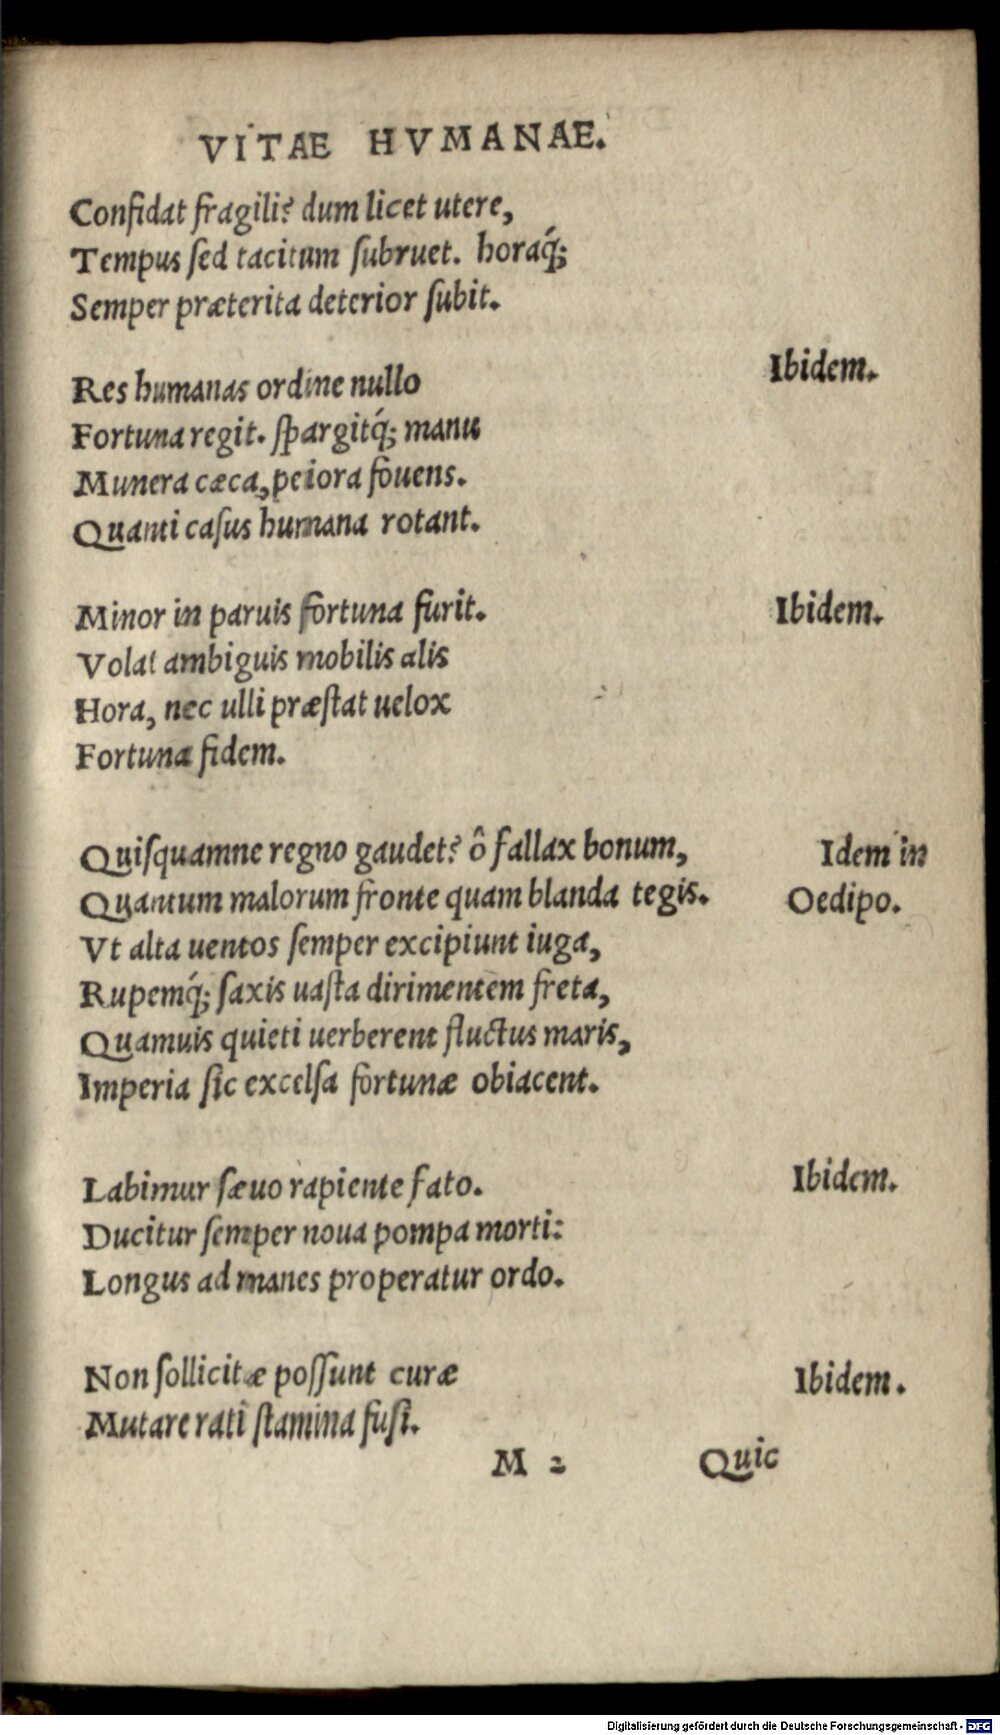 VITAE HVMANAE.
Confidat fragili? dum licet utere,
Tempus sed tacitum subruet. horaq́;
Semper præterita deterior subit.
Res humanas ordine nullo
Ibidem.
Fortuna regit. spargitq́; manu
Munera cæca, peiora fouens.
Quanti casus humana rotant.
Minor in paruis fortuna furit.
Ibidem.
Volat ambiguis mobilis alis
Hora, nec ulli præstat uelox
Fortuna fidem.
Quisquamne regno gaudet? ô fallax bonum,
Idem in
Quantum malorum fronte quam blanda tegis.
Oedipo.
Vt alta uentos semper excipiunt iuga,
Rupemq́; saxis uasta dirimentem freta,
Quamuis quieti uerberent fluctus maris,
Imperia sic excelsa fortunæ obiacent.
Labimur sæuo rapiente fato.
Ibidem.
Ducitur semper noua pompa morti:
Longus ad manes properatur ordo.
Non sollicitæ possunt curæ
Ibidem.
Mutare rati stamina fusi.
M 2 Quic
Digitalisierung gefördert durch die Deutsche Forschungsgemeinschaft - DFG